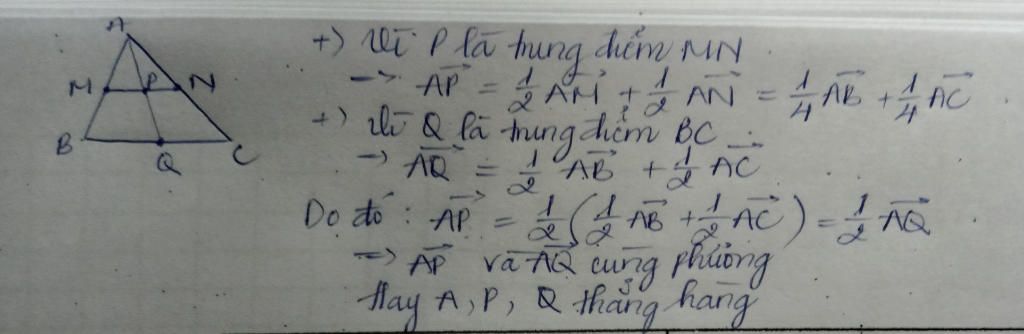 A
M P N
B Q C
+) Vì P là trung điểm MN
→ AP⃗ = 1/2 AM⃗ + 1/2 AN⃗ = 1/4 AB⃗ + 1/4 AC⃗ .
+) Vì Q là trung điểm BC
→ AQ⃗ = 1/2 AB⃗ + 1/2 AC⃗
Do đó : AP⃗ = 1/2 (1/2 AB⃗ + 1/2 AC⃗) = 1/2 AQ⃗
=> AP⃗ và AQ⃗ cùng phương
Hay A, P, Q thẳng hàng